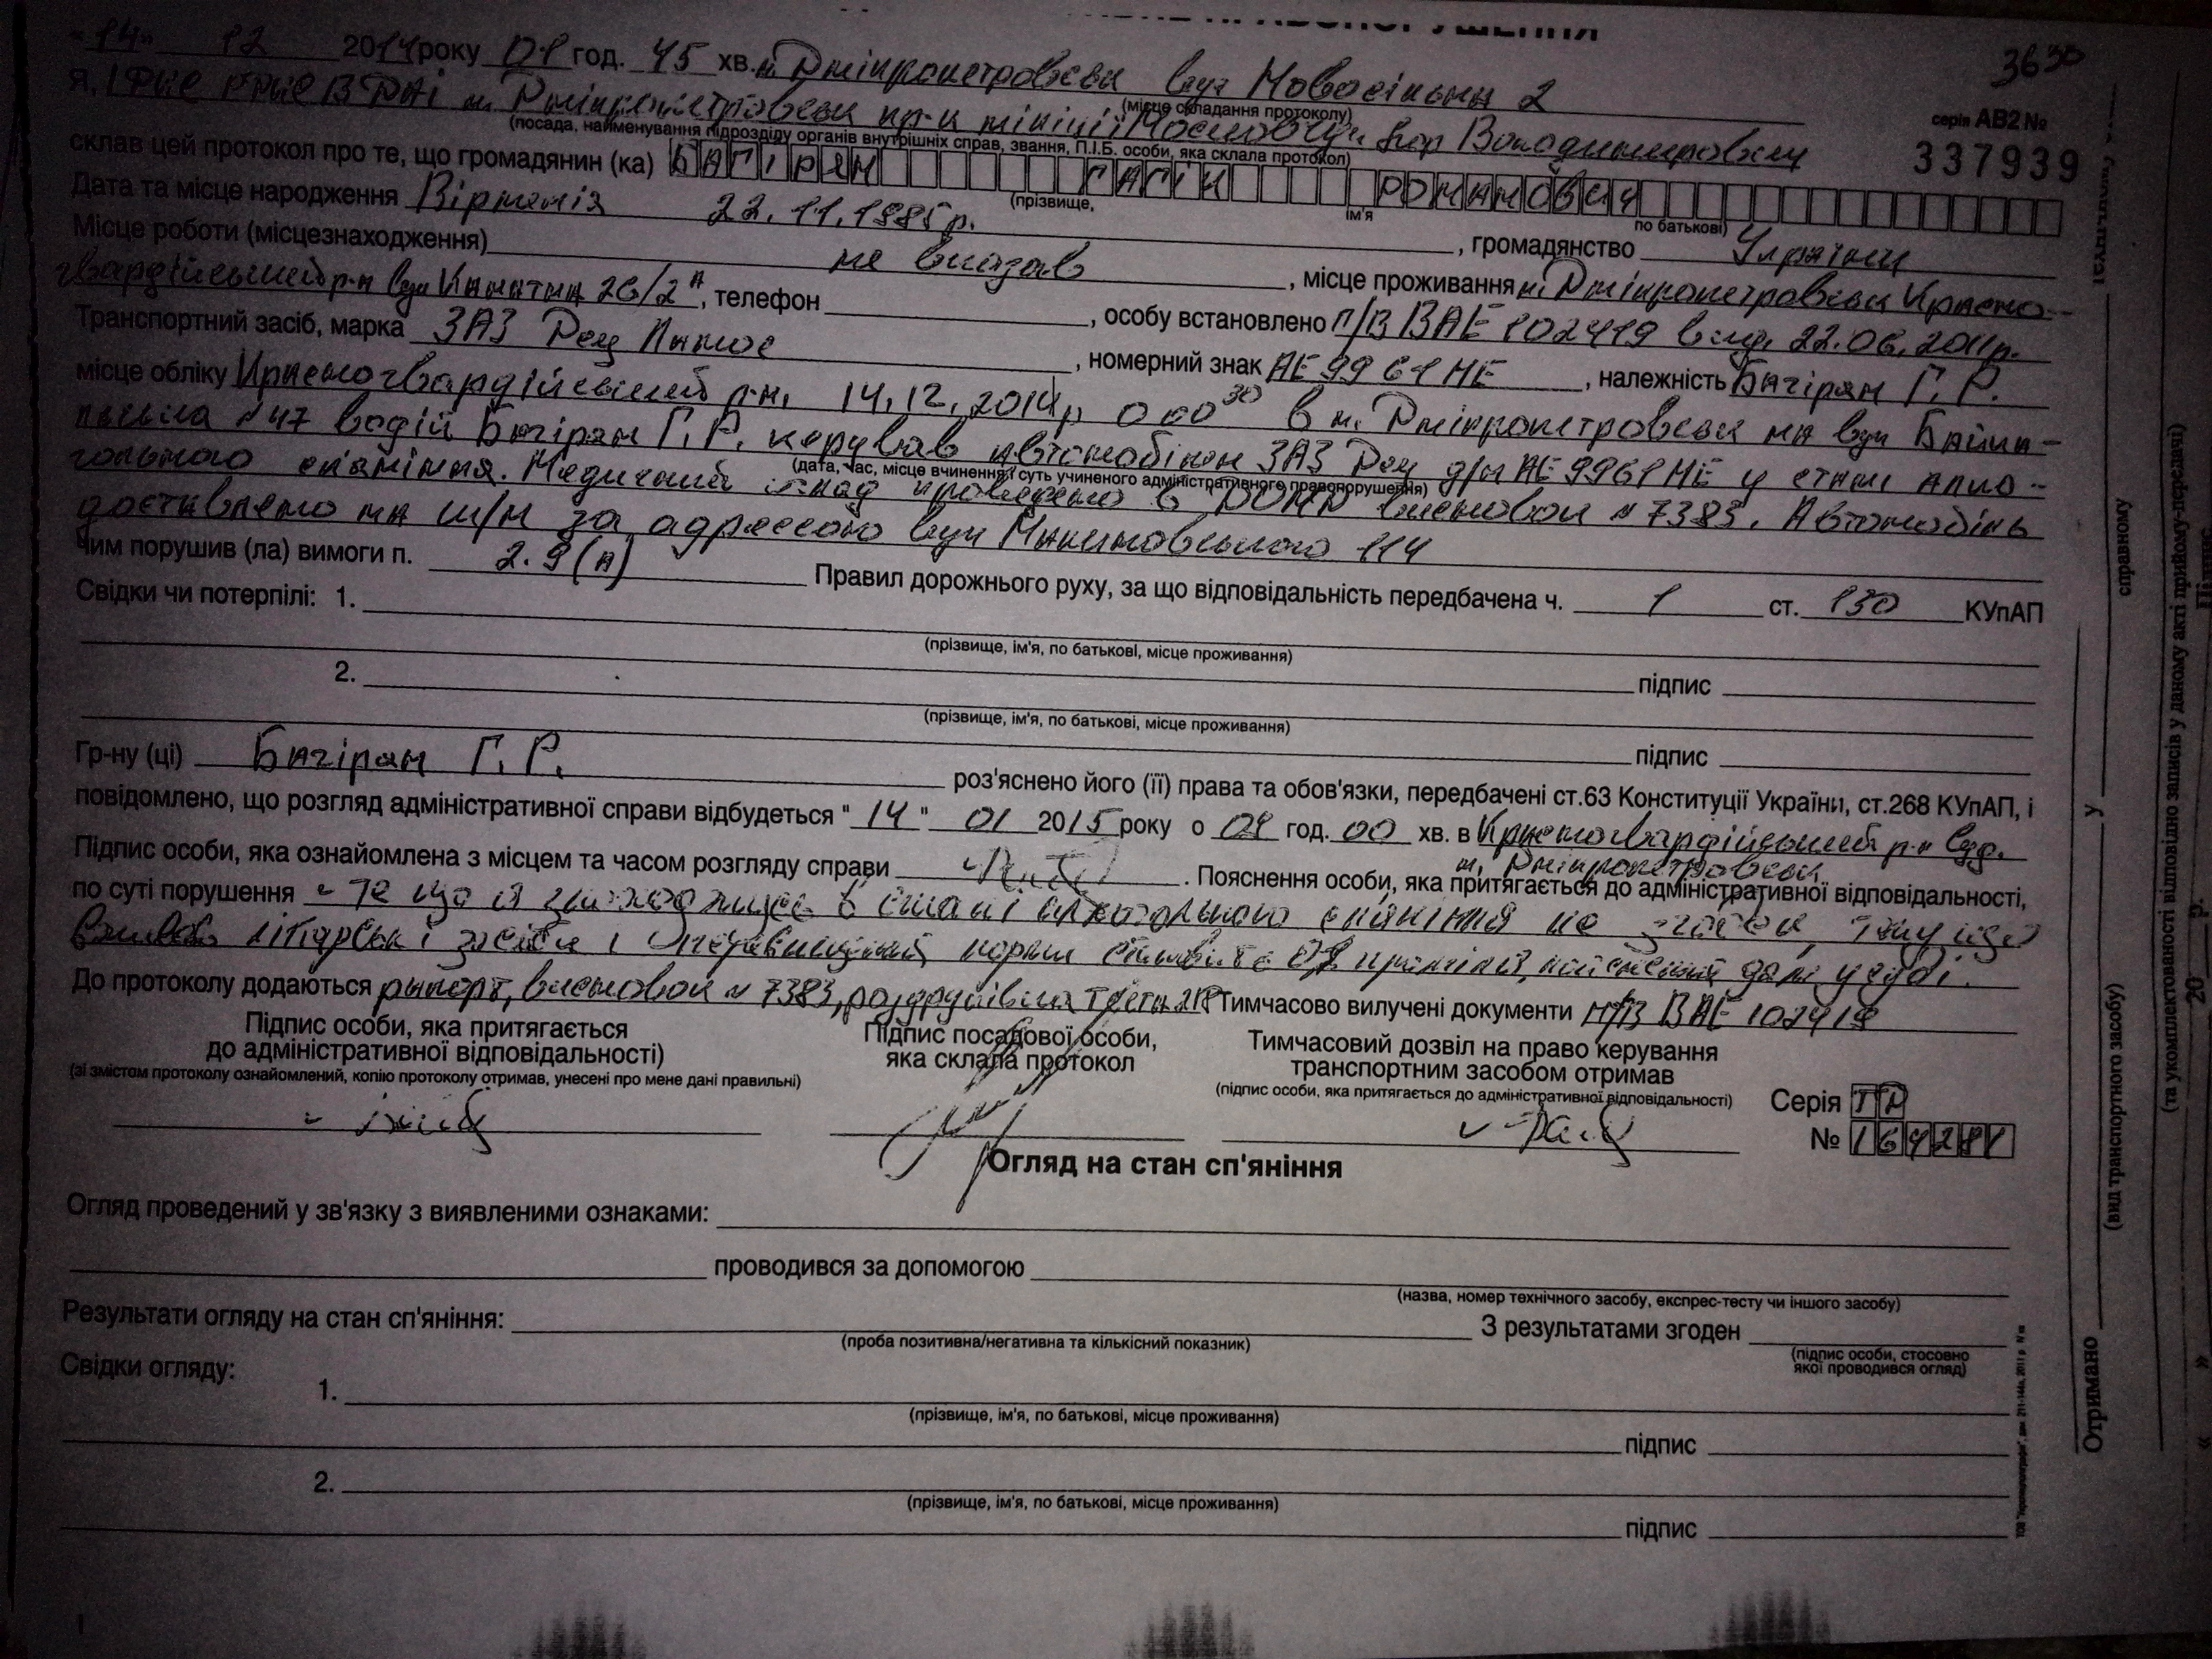 3630
"14" 12 2014 року 01 год. 45 хв. м. Дніпропетровськ вул Новосільна 2
(місце складання протоколу)
Я, м. Дніпропетровськ пр-к міліції Володимирович
(посада, найменування підрозділу органів внутрішніх справ, звання, П.І.Б. особи, яка склала протокол)
серія АВ2 №
337939
склав цей протокол про те, що громадянин (ка) БАГІРЯН ГАГІК РОМАНОВИЧ
(прізвище, ім'я по батькові)
Дата та місце народження Вірменія 22.11.1985 р. , громадянство України
Місце роботи (місцезнаходження) не вказав , місце проживання м. Дніпропетровськ Красно-
гвардійський р-н вул Канатна 26/2А, телефон , особу встановлено п/в ВАЕ 102419 вид. 22.06.2011р.
Транспортний засіб, марка ЗАЗ Деу Ланос , номерний знак АЕ 9961 НЕ , належність Багірян Г. Р.
місце обліку Красногвардійський р-н. 14.12.2014р о 00 30 в м. Дніпропетровськ на вул Байка-
льська №47 водій Багірян Г.Р. керував автомобілем ЗАЗ Деу д/н АЕ 9961 НЕ у стані алко-
(дата, час, місце вчинення і суть учиненого адміністративного правопорушення)
гольного сп'яніння. Медичний огляд проведено в висновок №7383. Автомобіль
доставлено на ш/м за адресою вул Маяковського 114
чим порушив (ла) вимоги п. 2.9 (а) Правил дорожнього руху, за що відповідальність передбачена ч. 1 ст. 130 КУпАП
Свідки чи потерпілі: 1.
(прізвище, ім'я, по батькові, місце проживання)
підпис
2.
(прізвище, ім'я, по батькові, місце проживання)
підпис
Гр-ну (ці) Багірян Г. Р. роз'яснено його (її) права та обов'язки, передбачені ст.63 Конституції України, ст.268 КУпАП, і
повідомлено, що розгляд адміністративної справи відбудеться "14" 01 2015 року о 09 год. 00 хв. в Красногвардійський р-н суд.
м. Дніпропетровськ
Підпис особи, яка ознайомлена з місцем та часом розгляду справи . Пояснення особи, яка притягається до адміністративної відповідальності,
по суті порушення Те що я знаходжусь в стані алкогольного сп'яніння не згоден, тому що
вживав лікарські засоби і норми пояснення дам у суді.
До протоколу додаються рапорт, висновок №7383, роздруківка Тимчасово вилучені документи п/в ВАЕ 102419
Підпис особи, яка притягається
до адміністративної відповідальності)
(зі змістом протоколу ознайомлений, копію протоколу отримав, унесені про мене дані правильні)
Підпис посадової особи,
яка склала протокол
Тимчасовий дозвіл на право керування
транспортним засобом отримав
(підпис особи, яка притягається до адміністративної відповідальності)
Серія
№ 164281
Огляд на стан сп'яніння
Огляд проведений у зв'язку з виявленими ознаками:
проводився за допомогою
(назва, номер технічного засобу, експрес-тесту чи іншого засобу)
Результати огляду на стан сп'яніння: З результатами згоден
(проба позитивна/негативна та кількісний показник)
(підпис особи, стосовно
якої проводився огляд)
Свідки огляду:
1.
(прізвище, ім'я, по батькові, місце проживання)
підпис
2.
(прізвище, ім'я, по батькові, місце проживання)
підпис
Отримано у справному
(вид транспортного засобу)
(та укомплектованості відповідно записів у даному акті прийому-передачі)
« » 20 р.